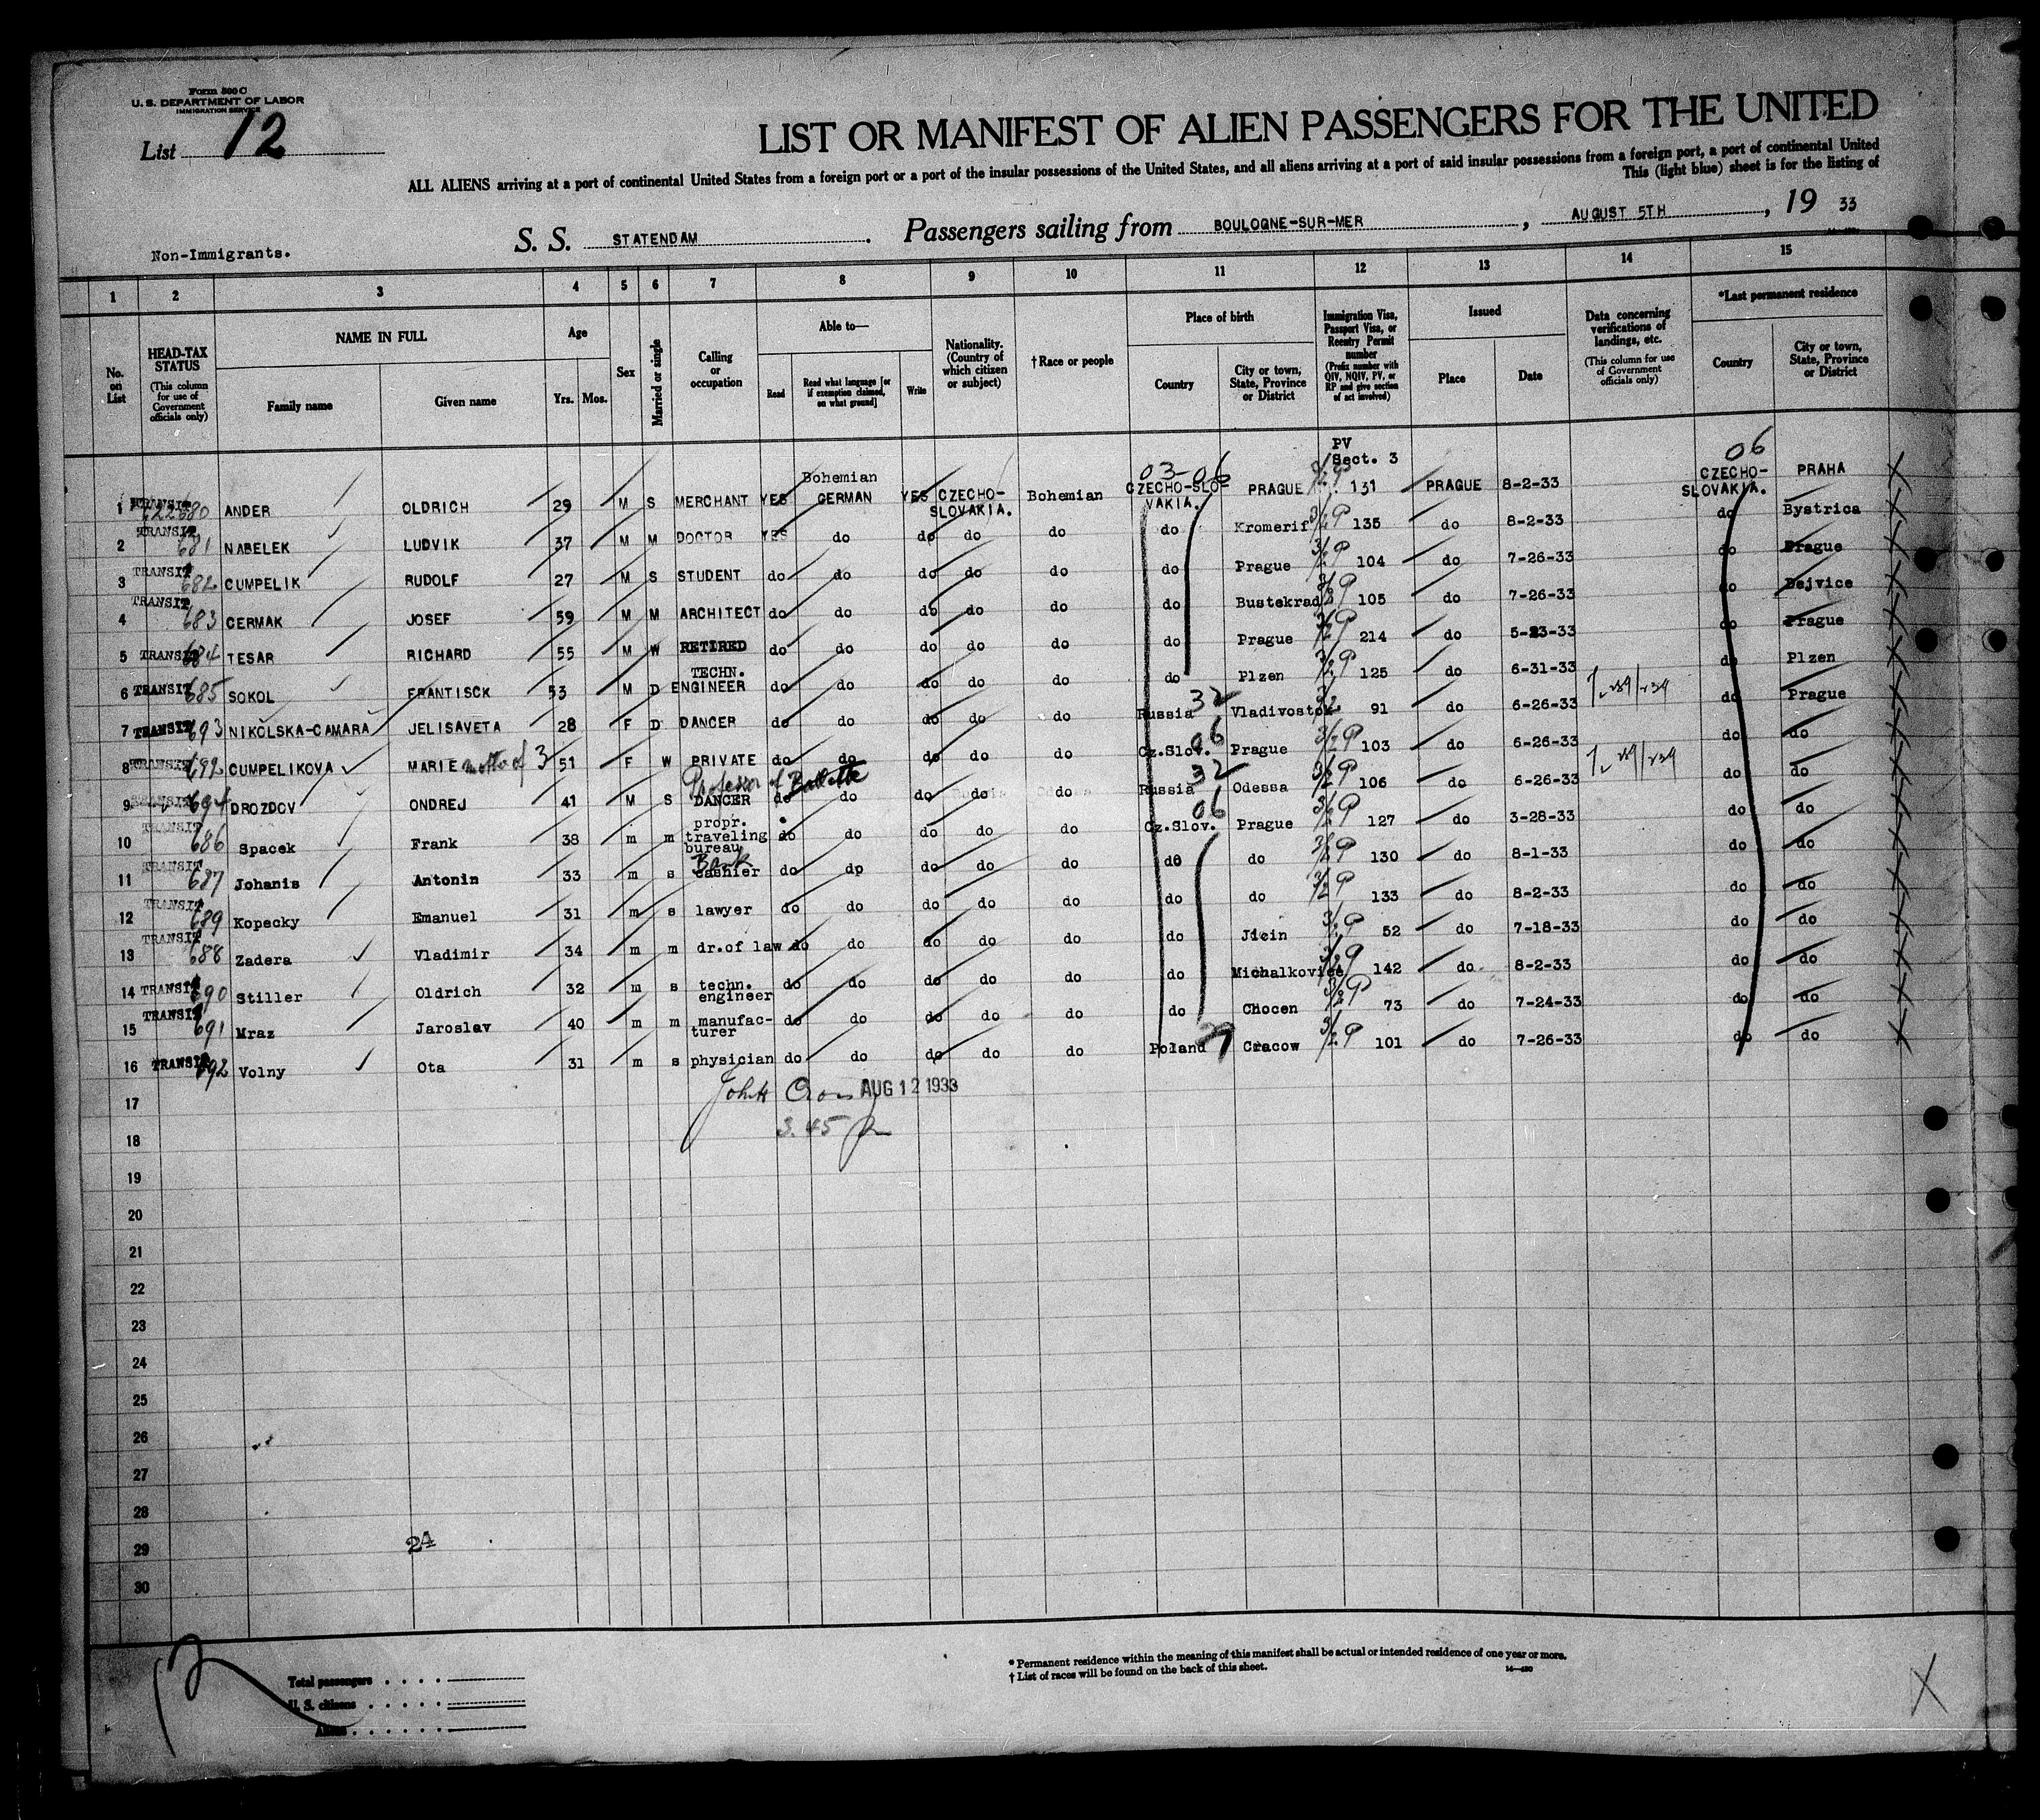 Form 500 C
U. S. DEPARTMENT OF LABOR
IMMIGRATION SERVICE
List 12
LIST OR MANIFEST OF ALIEN PASSENGERS FOR THE UNITED
ALL ALIENS arriving at a port of continental United States from a foreign port or a port of the insular possessions of the United States, and all aliens arriving at a port of said insular possessions from a foreign port, a port of continental United
This (light blue) sheet is for the listing of
Non-Immigrants.
S. S. STATENDAM. Passengers sailing from BOULOGNE-SUR-MER, AUGUST 5TH, 19 33
1 2 3 4 5 6 7 8 9 10 11 12 13 14 15
No. on List
HEAD-TAX STATUS (This column for use of Government officials only)
NAME IN FULL
Family name Given name
Age
Yrs. Mos.
Sex
Married or single
Calling or occupation
Able to—
Read Read what language [or if exemption claimed, on what ground] Write
Nationality. (Country of which citizen or subject)
†Race or people
Place of birth
Country City or town, State, Province or District
Immigration Visa, Passport Visa, or Reentry Permit number (Prefix number with QIV, NQIV, PV, or RP and give section of act involved)
Issued
Place Date
Data concerning verifications of landings, etc. (This column for use of Government officials only)
*Last permanent residence
Country City or town, State, Province or District
PV Sect. 3
03-06 06
1 TRANSIT 680 ANDER OLDRICH 29 M S MERCHANT YES Bohemian GERMAN YES CZECHO-SLOVAKIA. Bohemian CZECHO-SLO-VAKIA. PRAGUE 131 PRAGUE 8-2-33 CZECHO-SLOVAKIA. PRAHA
2 TRANSIT 681 NABELEK LUDVIK 37 M M DOCTOR YES do do do do do Kromerif 3/2 P 135 do 8-2-33 do Bystrica
3 TRANSIT 682 CUMPELIK RUDOLF 27 M S STUDENT do do do do do do Prague 3/2 P 104 do 7-26-33 do Prague
4 TRANSIT 683 CERMAK JOSEF 59 M M ARCHITECT do do do do do do Bustekrad 3/2 P 105 do 7-26-33 do Dejvice
5 TRANSIT 684 TESAR RICHARD 55 M W RETIRED do do do do do do Prague 3/2 P 214 do 5-23-33 do Prague
6 TRANSIT 685 SOKOL FRANTISCK 53 M D TECHN. ENGINEER do do do do do do Plzen 3/2 P 125 do 6-31-33 do Plzen
7 TRANSIT 693 NIKOLSKA-CAMARA JELISAVETA 28 F D DANCER do do do do do Russia 32 Vladivostok 3/2 91 do 6-26-33 do Prague
8 TRANSIT 692 CUMPELIKOVA MARIE mother of 3 51 F W PRIVATE do do do do do Cz.Slov. 06 Prague 3/2 P 103 do 6-26-33 do do
9 694 DROZDOV ONDREJ 41 M S Professor of Ballette DANCER do do do do do Russia 32 Odessa 3/2 P 106 do 6-26-33 do do
10 TRANSIT 686 Spacek Frank 38 m m propr. traveling bureau do do do do do Cz.Slov. 06 Prague 3/2 P 127 do 3-28-33 do do
11 TRANSIT 687 Johanis Antonin 33 m s Bank cashier do dp do do do do do 3/2 P 130 do 8-1-33 do do
12 TRANSIT 689 Kopecky Emanuel 31 m s lawyer do do do do do do do 3/2 P 133 do 8-2-33 do do
13 TRANSIT 688 Zadera Vladimir 34 m m dr.of law do do do do do do Jicin 3/2 P 52 do 7-18-33 do do
14 TRANSIT 690 Stiller Oldrich 32 m s techn. engineer do do do do do do Michalkovice 3/2 P 142 do 8-2-33 do do
15 TRANSIT 691 Mraz Jaroslav 40 m m manufac-turer do do do do do do Chocen 3/2 P 73 do 7-24-33 do do
16 TRANSIT 692 Volny Ota 31 m s physician do do do do do Poland Cracow 3/2 P 101 do 7-26-33 do do
17 John AUG 12 1933
18 3.45 P
19
20
21
22
23
24
25
26
27
28
29 24
30
Total passengers
U. S. citizens
Aliens
* Permanent residence within the meaning of this manifest shall be actual or intended residence of one year or more.
† List of races will be found on the back of this sheet.